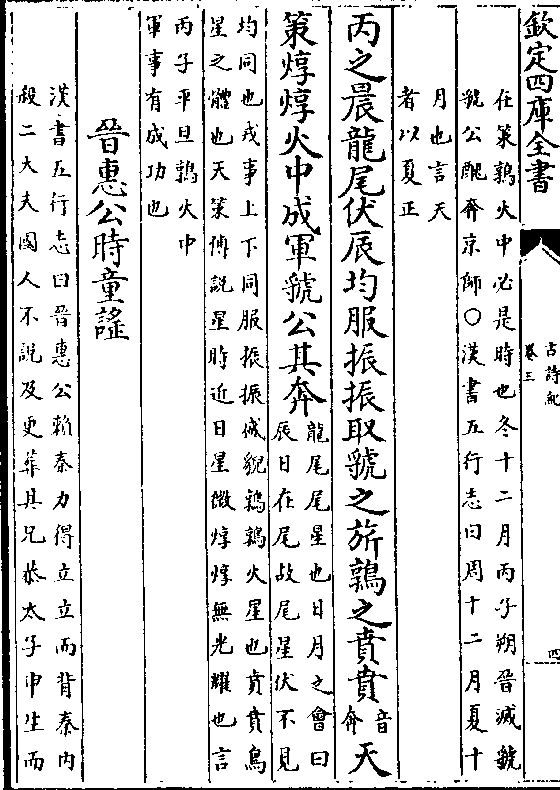 欽定四庫全書
古詩紀
卷三
四
在策鶉火中必是時也冬十二月丙子朔晉滅虢
虢公醜奔京師○漢書五行志曰周十二月夏十
月也言天
者以夏正
丙之晨龍尾伏辰均服振振取虢之旂鶉之賁賁
音
奔
天
策焞焞火中成軍虢公其奔
龍尾尾星也日月之會曰
辰日在尾故尾星伏不見
均同也戎事上下同服振振偉貌鶉鶉火星也賁賁鳥
星之體也天策傅說星時近日星微焞焞無光耀也言
丙子平旦鶉火中
軍事有成功也
晉惠公時童謡
漢書五行志曰晉惠公賴秦力得立立而背秦內
殺二大夫國人不說及更葬其兄恭太子申生而